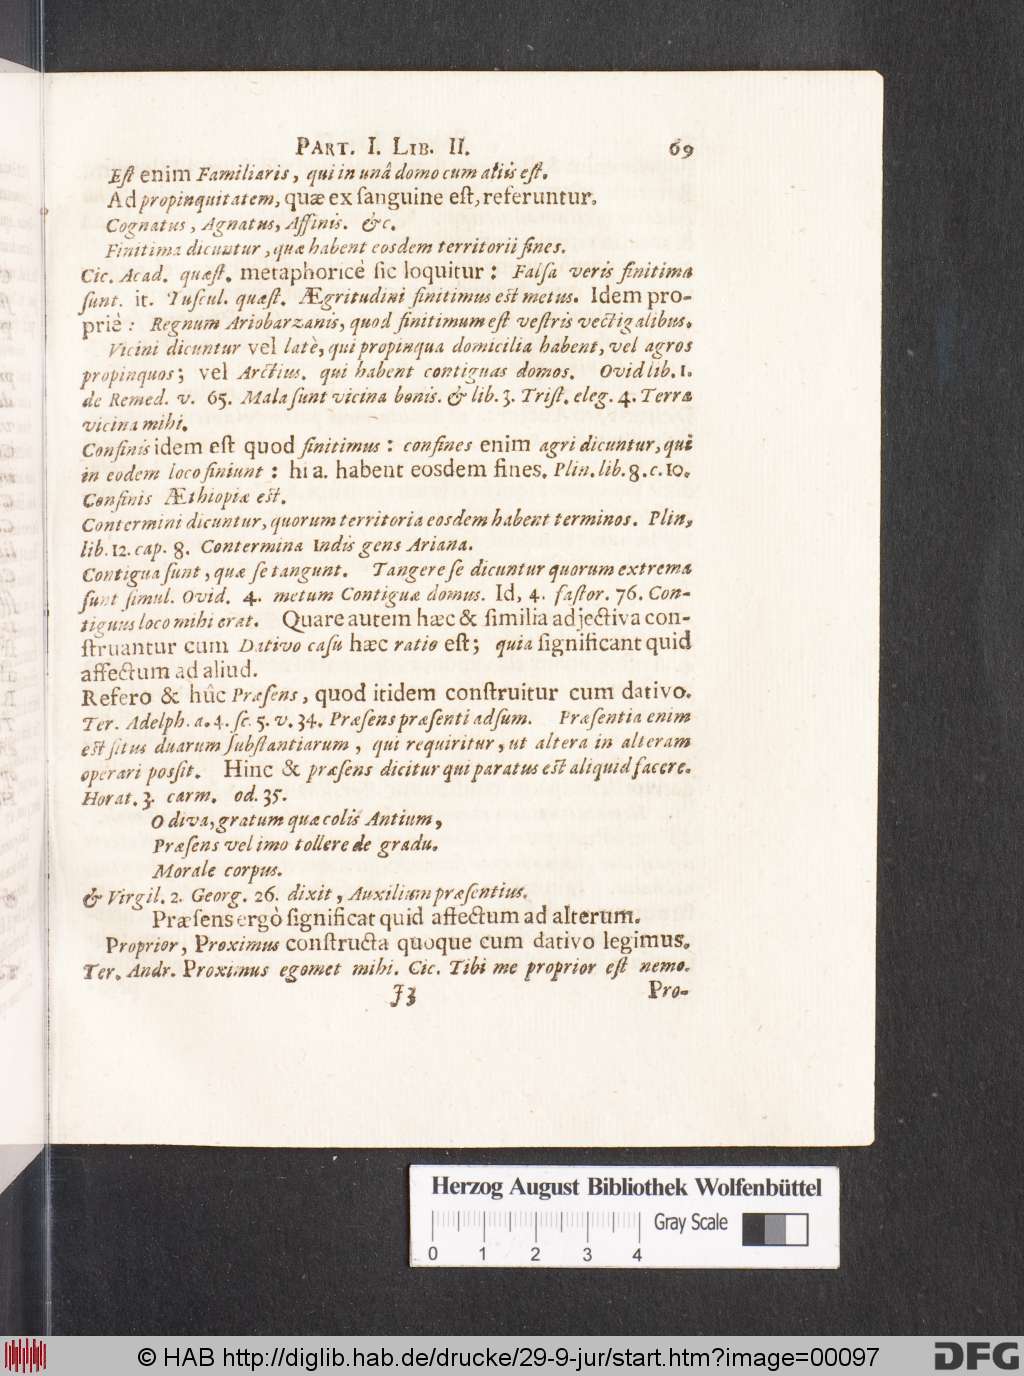 PART. I. LIB. II. 69
Eſt enim Familiaris, qui in unâ domo cum aliis eſt.
Ad propinquitatem, quæ ex ſanguine eſt, referuntur,
Cognatus, Agnatus, Affinis. &c.
Finitima dicuntur, quæ habent eosdem territorii fines.
Cic. Acad. quæſt. metaphoricè ſic loquitur: Falſa veris finitima
ſunt. it. Tuſcul. quæſt. Ægritudini finitimus eſt metus. Idem pro-
priè: Regnum Ariobarzanis, quod finitimum eſt veſtris vectigalibus.
Vicini dicuntur vel latè, qui propinqua domicilia habent, vel agros
propinquos; vel Arctius. qui habent contiguas domos. Ovid lib. 1.
de Remed. v. 65. Mala ſunt vicina bonis. & lib. 3. Triſt. eleg. 4. Terra
vicina mihi.
Confinis idem eſt quod finitimus: confines enim agri dicuntur, qui
in eodem loco finiunt: hi a. habent eosdem fines. Plin. lib. 8. c. 10.
Confinis Æthiopiæ eſt.
Contermini dicuntur, quorum territoria eosdem habent terminos. Plin,
lib. 12. cap. 8. Contermina Indis gens Ariana.
Contigua ſunt, quæ ſe tangunt. Tangere ſe dicuntur quorum extrema
ſunt ſimul. Ovid. 4. metum Contiguæ domus. Id, 4. faſtor. 76. Con-
tiguus loco mihi erat. Quare autem hæc & ſimilia adjectiva con-
ſtruantur cum Dativo caſu hæc ratio eſt; quia ſignificant quid
affectum ad aliud.
Refero & hûc Præſens, quod itidem conſtruitur cum dativo.
Ter. Adelph. a. 4. ſc. 5. v. 34. Præſens præſenti adſum. Præſentia enim
eſt ſitus duarum ſubſtantiarum, qui requiritur, ut altera in alteram
operari poſſit. Hinc & præſens dicitur qui paratus eſt aliquid facere.
Horat. 3. carm. od. 35.
O diva, gratum quæ colis Antium,
Præſens vel imo tollere de gradu.
Morale corpus.
& Virgil. 2. Georg. 26. dixit, Auxilium præſentius.
Præſens ergò ſignificat quid affectum ad alterum.
Proprior, Proximus conſtructa quoque cum dativo legimus.
Ter. Andr. Proximus egomet mihi. Cic. Tibi me proprior eſt nemo.
J3 Pro-
Herzog August Bibliothek Wolfenbüttel
Gray Scale
0 1 2 3 4
© HAB http://diglib.hab.de/drucke/29-9-jur/start.htm?image=00097
DFG